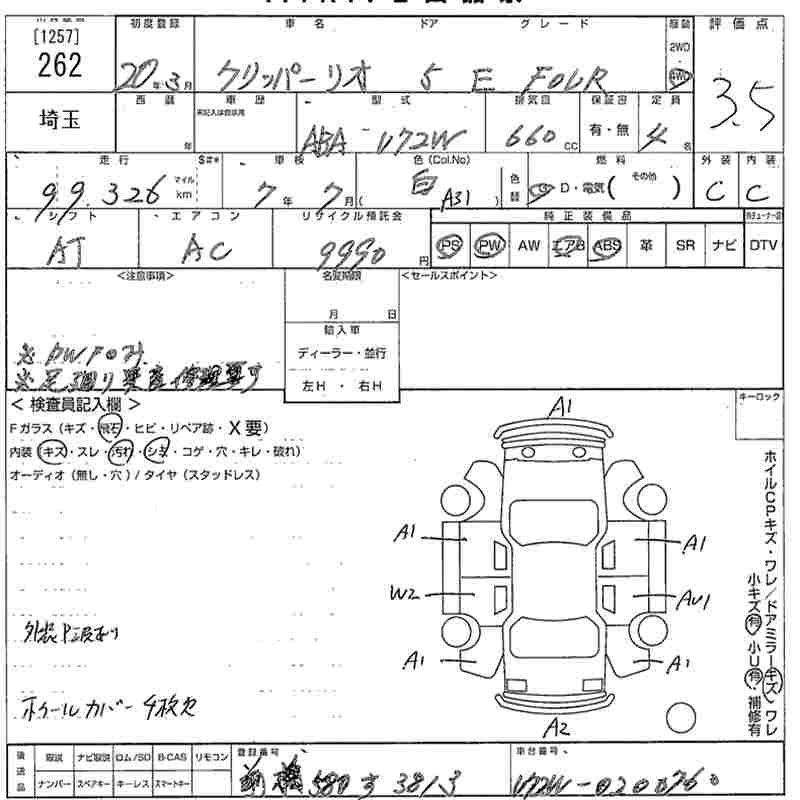 [1257] 初度登録 車名 ドア グレード 服装 評価点
262 20年3月 クリッパーリオ 5 E FOUR 2WD 4WD 3.5
埼玉 西暦 年 車歴 未記入は自家用 型式 ABA U72W 排気量 660 CC 保証書 有・無 定員 4名
走行 99,326 マイル km S#* 車検 7年7月 色(Col.No) 白 A31 色替 燃料 G D・電気 (その他) 外装 C 内装 C
シフト AT エアコン AC リサイクル預託金 9990円 純正装備品 PS PW AW エアB ABS 革 SR ナビ DTV
<注意事項> 名変期限 <セールスポイント>
月 日
輸入車
ディーラー・並行
左H・右H
< 検査員記入欄 > キーロック
Fガラス (キズ・飛石・ヒビ・リペア跡・X要)
内装 (キズ・スレ・汚れ・シミ・コゲ・穴・キレ・破れ)
オーディオ (無し・穴) / タイヤ (スタッドレス)
A1
A1 A1
W2 AU1
A1 A1
A2
ホイルCPキズ・ワレ/ドアミラーキズ・ワレ
小キズ有 小U有・補修有
ホイールカバー4枚欠
後送品 取説 ナビ取説 ロム/SD B-CAS リモコン 登録番号 車台番号
ナンバー スペアキー キーレス スマートキー 前橋 580 す 3813 U72W-0200760